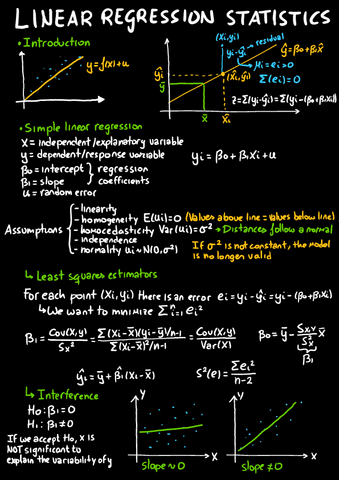 LINEAR REGRESSION STATISTICS
• Introduction
y=f(x)+u
(xi,yi)
yi-ŷi → residual
→ Mi=ei>0
Σ(ei)=0
ŷ=β0+β1x̂
(x̂i,ŷi)
ŷi
ȳ
x̄
x̂i
z=Σ(yi-ŷi)=Σ(yi-(β0+β1xi))
• Simple linear regression
X = independent/explanatory variable
y = dependent/response variable
β0 = intercept
β1 = slope
} regression coefficients
u = random error
yi=β0+β1xi+u
Assumptions
- linearity
- homogeneity E(ui)=0 (Values above line = values below line)
- homocedasticity Var(ui)=σ² → Distances follow a normal
- independence
- normality ui~N(0,σ²)
If σ² is not constant, the model
is no longer valid
↳ Least squares estimators
For each point (xi,yi) there is an error ei=yi-ŷi=yi-(β0+β1xi)
↳ We want to minimize Σⁿi=1 ei²
β1 = Cov(x,y)/Sx² = (Σ(xi-x̄)(yi-ȳ)/n-1)/(Σ(xi-x̄)²/n-1) = Cov(x,y)/Var(x)
β0=ȳ-(Sx,y/Sx²)x̄
β̂1
ŷi=ȳ+β̂1(xi-x̄)
S²(e)=Σei²/n-2
↳ Interference
H0:β1=0
H1:β1≠0
If we accept H0, x is
NOT significant to
explain the variability of y
y
x
slope~0
y
x
slope≠0